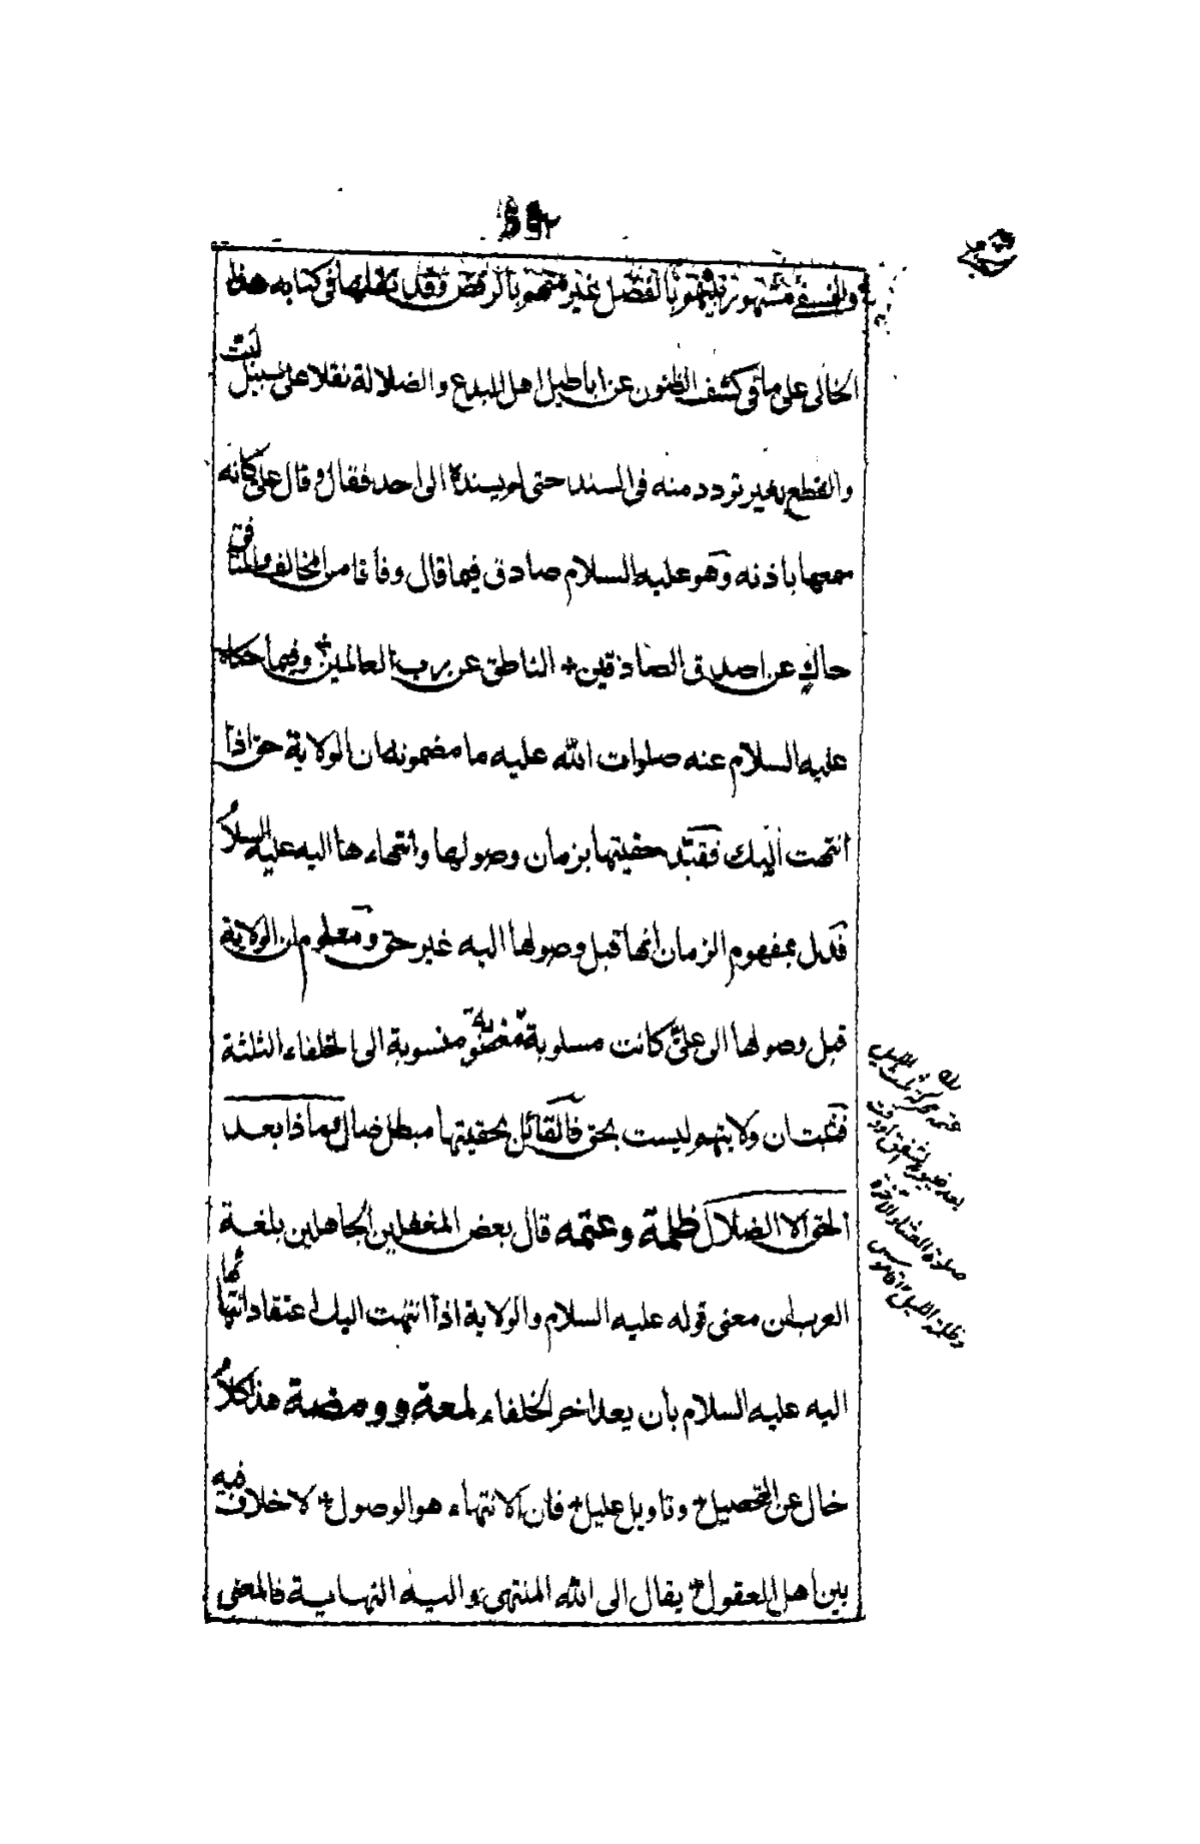 والنسفي مشهور بينهم بالفضل غير متهم بالرفض وقد نقلها في كتابه هذا
الخالى على ما في كشف الظنون عن اباطيل اهل البدع والضلالة نقلا على سبيل البت
والقطع بغير تردد منه في السند حتى لم يسنده الى احد فقال وقال على كانه
سمعها باذنه وهو عليه السلام صادق فيما قال وفاقا من المخالف والموافق
حاك عن اصدق الصادقين الناطق عن رب العالمين وفيما حكاه
عليه السلام عنه صلوات الله عليه ما مضمونه ان الولاية حق اذا
انتهت اليك فقيد حقيتها بزمان وصولها وانتهاءها اليه عليه السلام
فدل بمفهوم الزمان انها قبل وصولها اليه غير حق ومعلوم ان الولاية
قبل وصولها الى على كانت مسلوبة مغصوبة منسوبة الى الخلفاء الثلثة
فثبت ان ولايتهم ليست بحق فالقائل بحقيتها مبطل ضال فماذا بعد
الحق الا الضلال ظلمة وعتمه قال بعض المغفلين الجاهلين بلغة
العرب ان معنى قوله عليه السلام والولاية اذا انتهت اليك اعتقاد انتهائها
اليه عليه السلام بأن يعد اخر الخلفاء لمعة وومضة هذا كلام
خال عن التحصيل وتاويل عليل فان الانتهاء هو الوصول لا خلاف فيه
بين اهل المعقول يقال الى الله المنتهى واليه النهاية فالمعنى
عتمه محركة ثلث الليل
صلاة العشاء الآخرة
وظلمة الليل قاموس